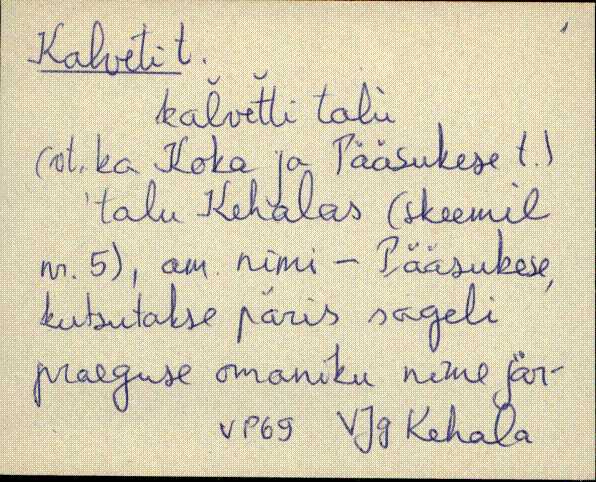 Kalveti t.
kal̆vĕt̆ti talù
(vt. ka Koka ja Pääsukese t.)
talu Kehalas (skeemil
nr. 5), am. nimi – Pääsukese,
kutsutakse päris sageli
praeguse omaniku nime jär-
VP69 VJg Kehala